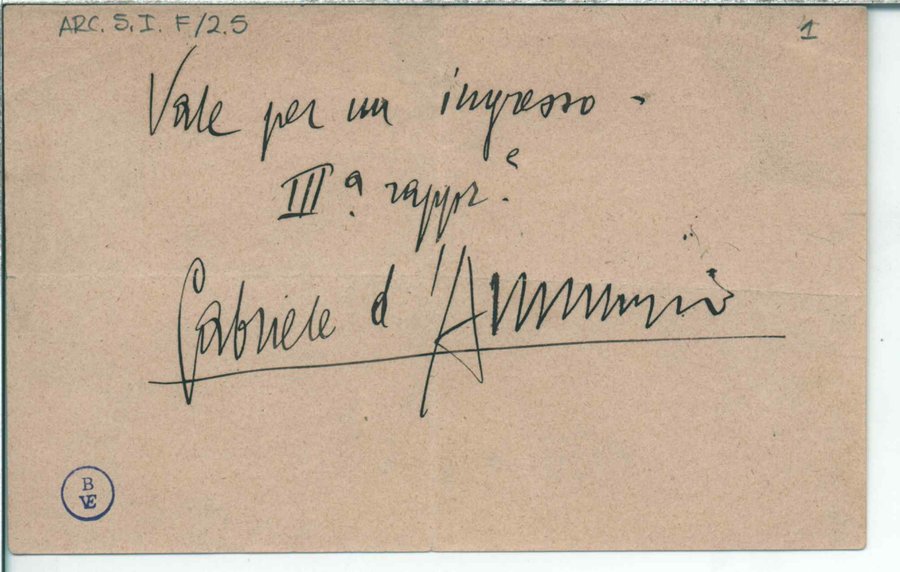 ARC. S. I. F/2.5
1
Vale per un ingresso -
IIIª rappr.e
Gabriele d'Annunzio
B
VE